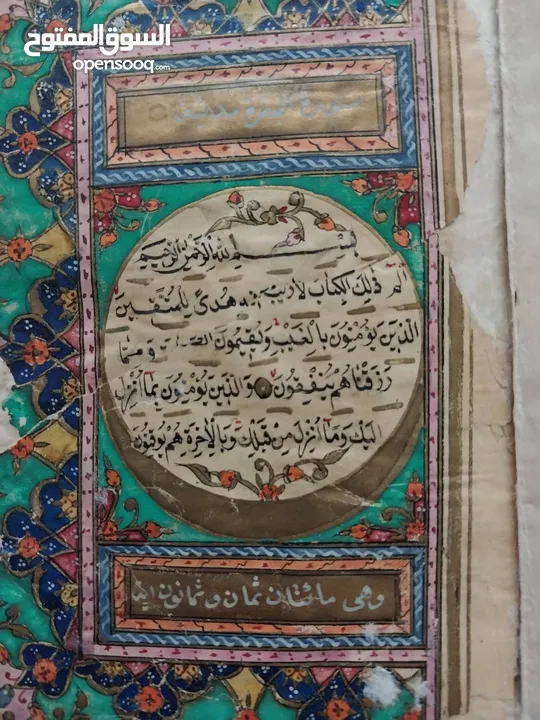 السوق المفتوح
opensooq.com
بسم الله الرحمن الرحيم
الم ذلك الكتاب لا ريب فيه هدى للمتقين
الذين يؤمنون بالغيب ويقيمون الصلا ة ومما
رزقناهم ينفقون والذين يؤمنون بما انزل
اليك وما انزل من قبلك وبالاخرة هم يوقنون
وهى مائتان ثمان وثمانون